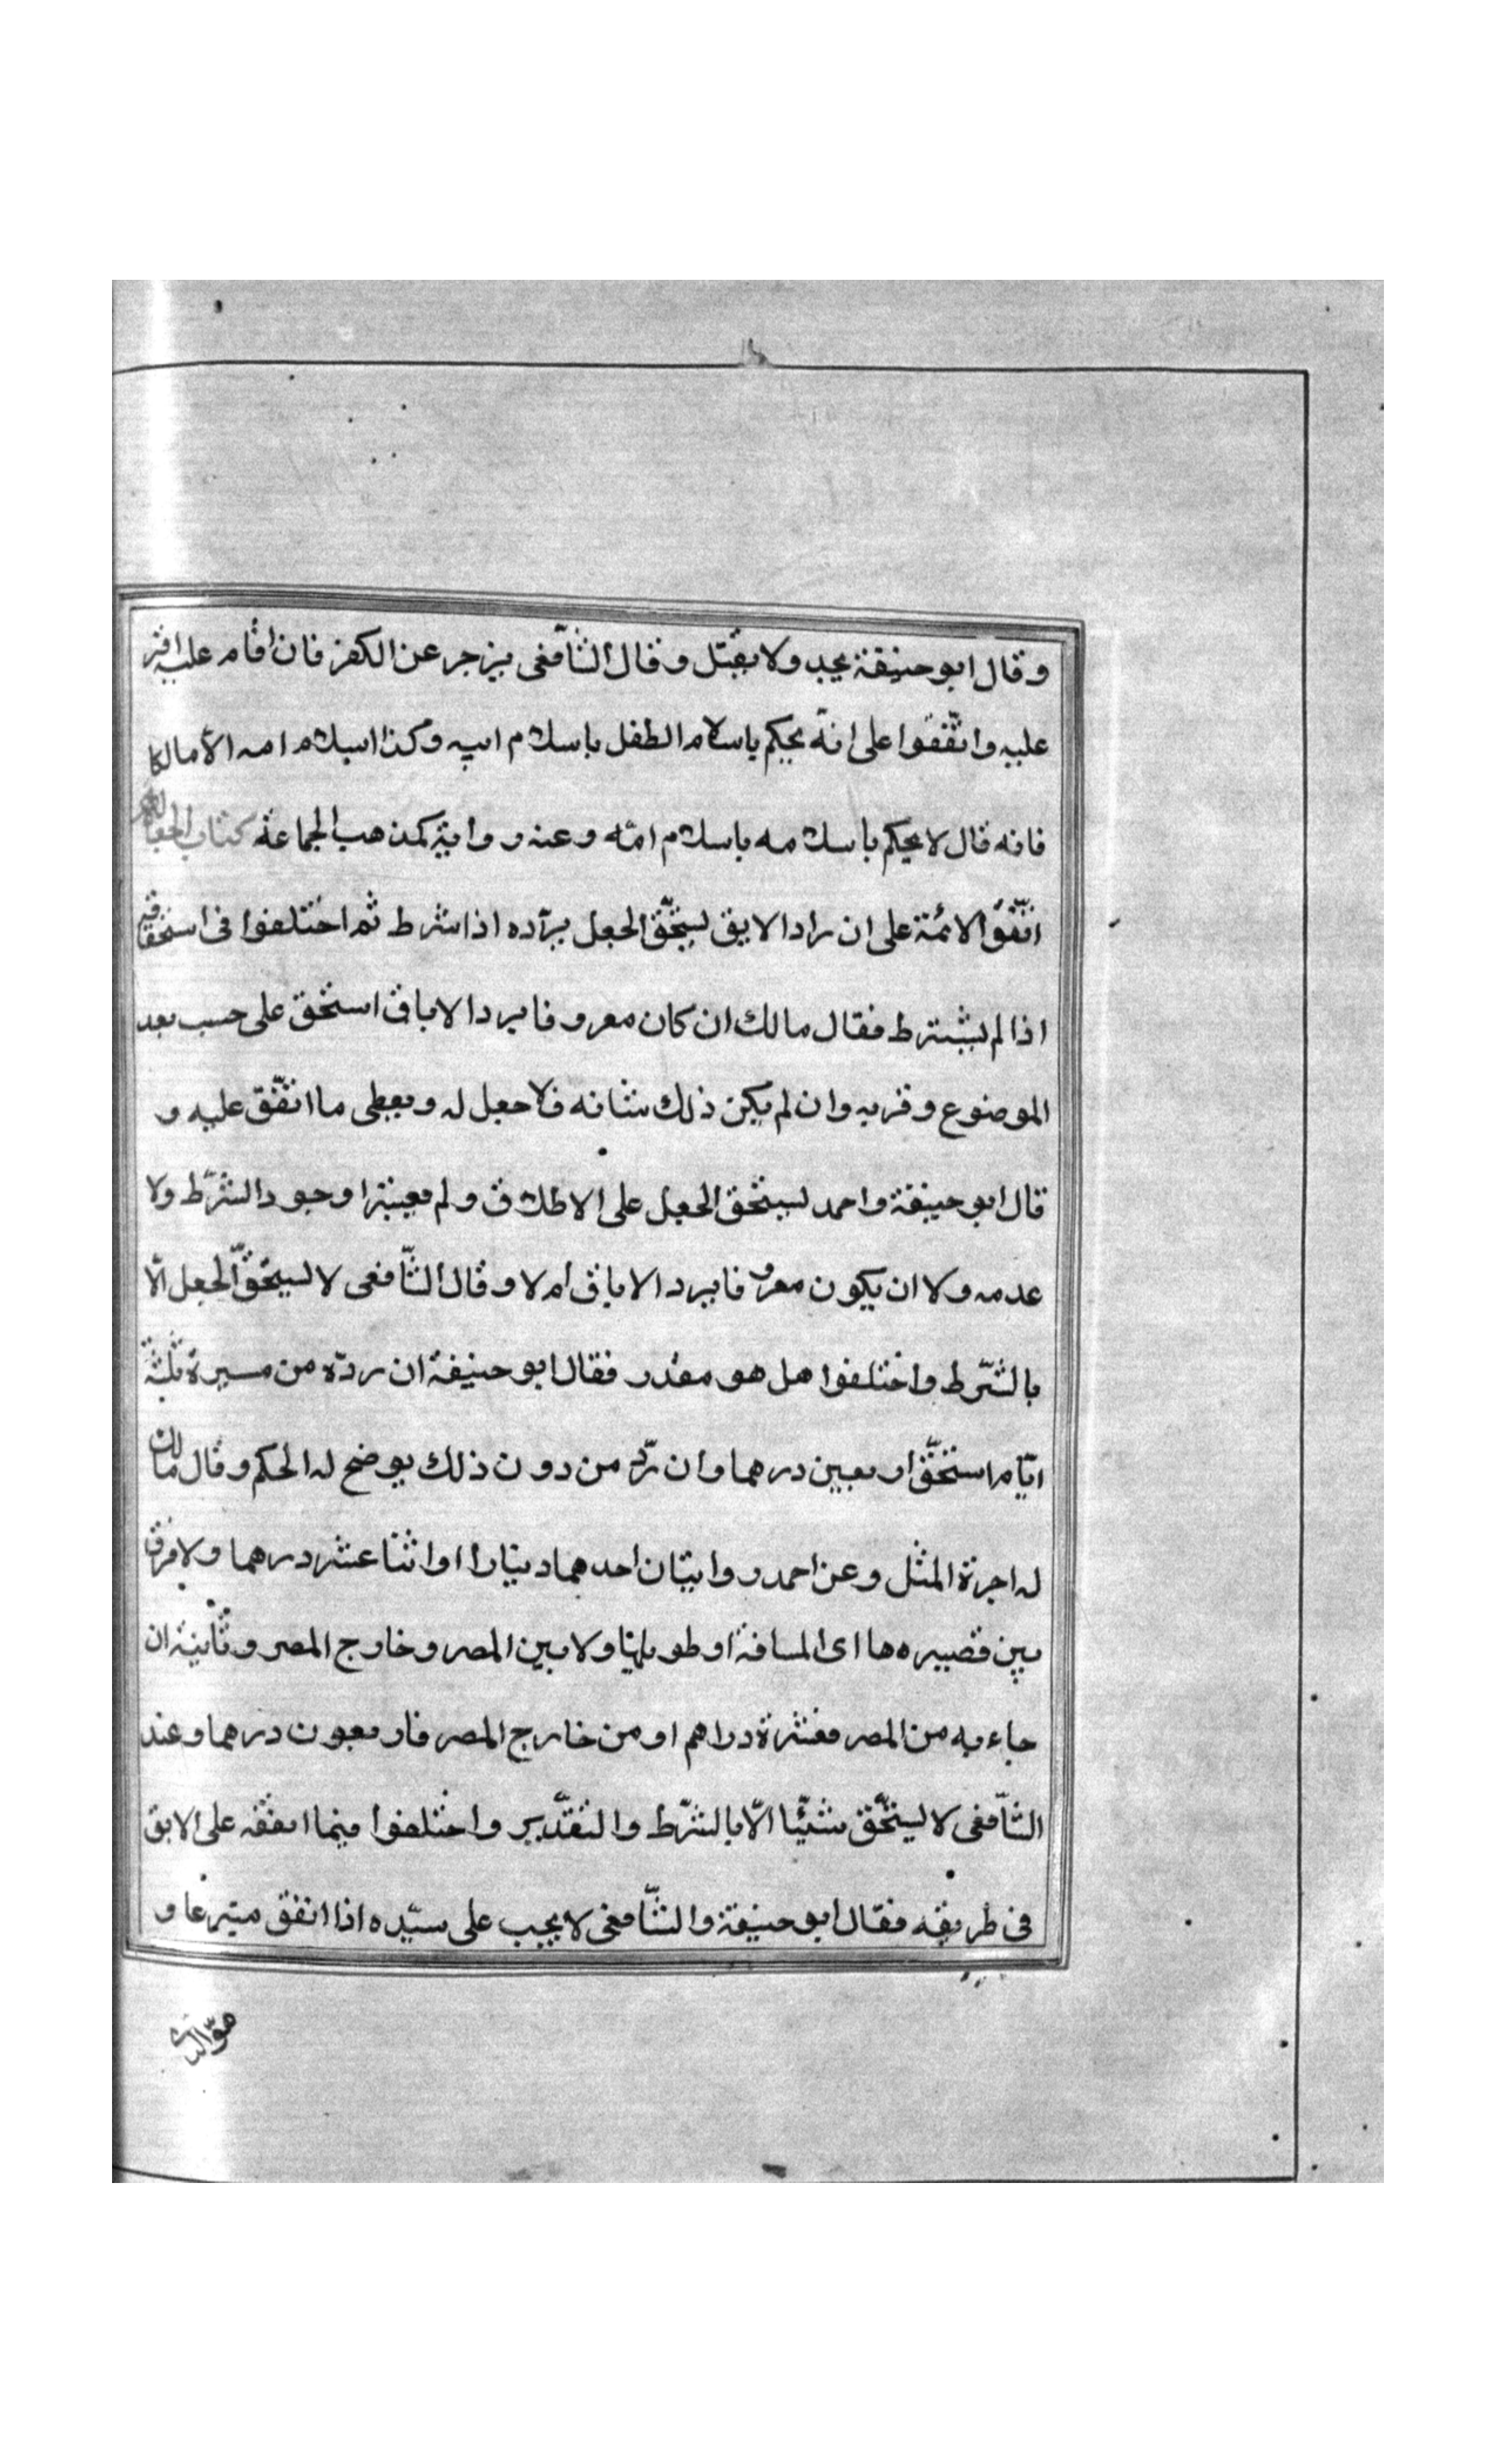 وقال ابو حنيفة يجبد ولا يقتل وقال الشافعى يزجر عن الكفر فان اقام عليه اقر
عليه واتّفقوا على انّه يحكم باسلام الطفل باسلام ابيه وكذا اسلام امه الا مالكا
فانه قال لا يحكم باسلامه باسلام امّه وعنه رواية كمذهب الجماعة كتاب الجعالة
اتّفق الائمة على ان راد الابق يستحّق الجعل بردّه اذا شرط ثم اختلفوا فى استحقاقه
اذا لم يشترط فقال مالك ان كان معروفا برد الاباق استحق على حسب بعد
الموضوع وقربه وان لم يكن ذلك شانه فلا جعل له ويعطى ما انفّق عليه و
قال ابو حنيفة واحمد يستحق الجعل على الاطلاق ولم يعبترا وجود الشرّط ولا
عدمه ولا ان يكون معروفا برد الاباق أم لا وقال الشّافعى لا يستحقّ الجعل الّا
بالشّرط واختلفوا هل هو مقدر فقال ابو حنيفة ان ردّه من مسيرة ثلثة
ايّام استحقّ اربعين درهما وان ردّه من دون ذلك يوضح له الحكم وقال مالك
له اجرة المثل وعن احمد روايتان احدهما دينارا او اثنا عشر درهما ولا فرق
بين قصيره ها اى المسافة او طويلها ولا بين المصر وخارج المصر وثانية ان
جاء به من المصر فعشرة دراهم او من خارج المصر فاربعون درهما وعند
الشّافعى لا يستحّق شيئا الّا بالشرّط والتقّدير واختلفوا فيما انفقه على الابق
فى طريقه فقال ابو حنيفة والشّافعى لا يجب على سيّده اذا انفق متبرعا و
هوّ الذى